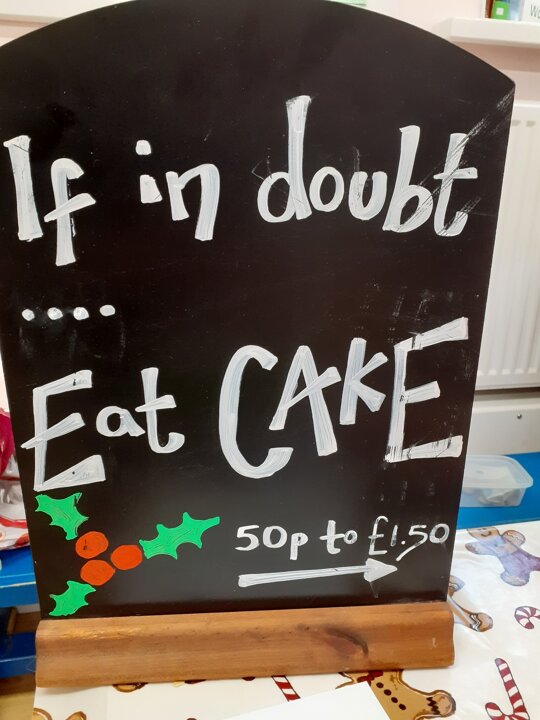 If in doubt
....
Eat CAKE
50p to £1.50